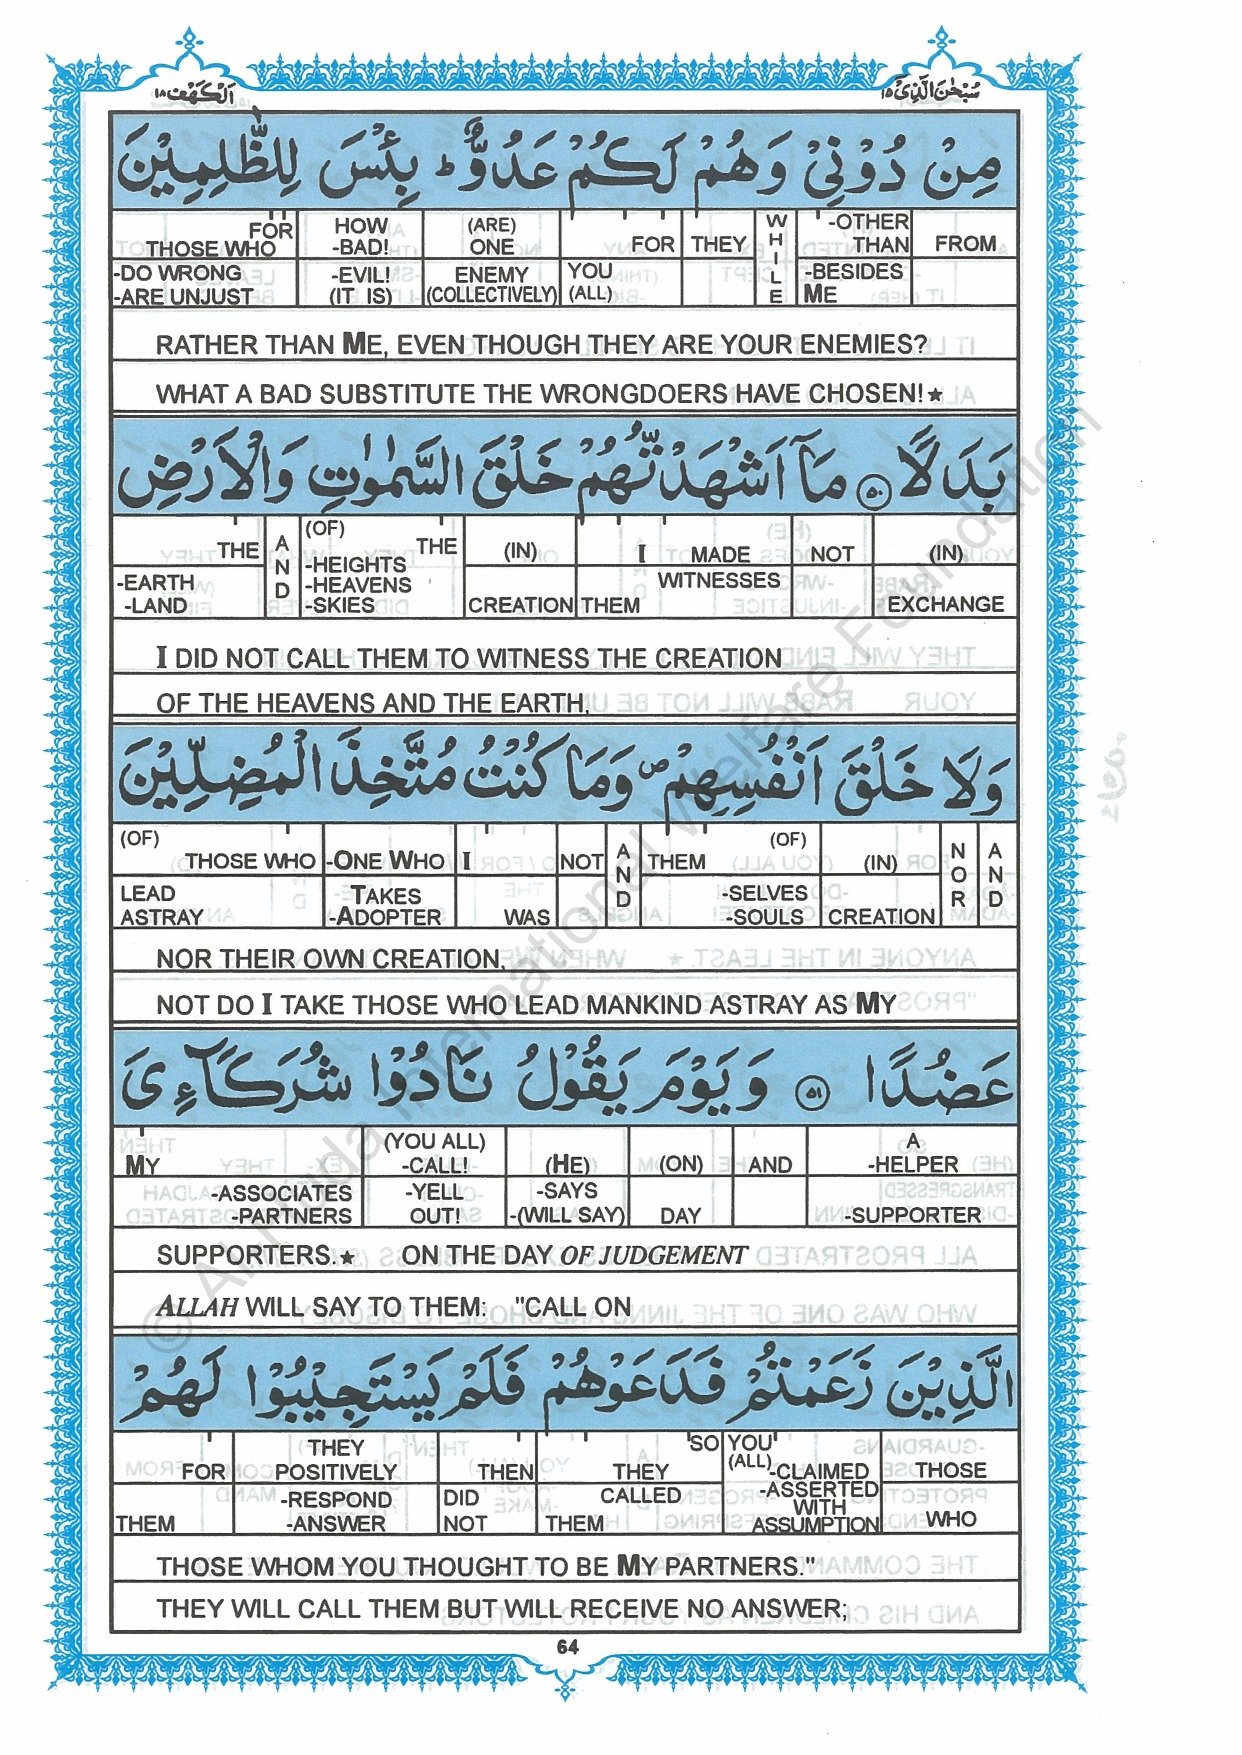 اَلْكَهْف ١٨
سُبْحٰنَ الَّذِىْٓ ١٥
مِنْ دُوْنِىْ وَهُمْ لَكُمْ عَدُوٌّ ؕ بِئْسَ لِلظّٰلِمِيْنَ
FOR THOSE WHO -DO WRONG -ARE UNJUST
HOW -BAD! -EVIL! (IT IS)
(ARE) ONE ENEMY (COLLECTIVELY)
FOR YOU (ALL)
THEY
WHILE
-OTHER THAN -BESIDES ME
FROM
RATHER THAN ME, EVEN THOUGH THEY ARE YOUR ENEMIES?
WHAT A BAD SUBSTITUTE THE WRONGDOERS HAVE CHOSEN!★
بَدَلًا ۝٥٠ مَاۤ اَشْهَدْتُّهُمْ خَلْقَ السَّمٰوٰتِ وَالْاَرْضِ
THE -EARTH -LAND
AND
(OF) THE -HEIGHTS -HEAVENS -SKIES
(IN) CREATION
I MADE WITNESSES THEM
NOT
(IN) EXCHANGE
I DID NOT CALL THEM TO WITNESS THE CREATION
OF THE HEAVENS AND THE EARTH,
وَلَا خَلْقَ اَنْفُسِهِمْ ۪ وَمَا كُنْتُ مُتَّخِذَ الْمُضِلِّيْنَ
(OF) THOSE WHO LEAD ASTRAY
-ONE WHO TAKES -ADOPTER
I WAS
NOT
AND
THEM (OF) -SELVES -SOULS
(IN) CREATION
NOR
AND
NOR THEIR OWN CREATION,
NOT DO I TAKE THOSE WHO LEAD MANKIND ASTRAY AS MY
عَضُدًا ۝٥١ وَيَوْمَ يَقُوْلُ نَادُوْا شُرَكَآءِىَ
MY -ASSOCIATES -PARTNERS
(YOU ALL) -CALL! -YELL OUT!
(HE) -SAYS -(WILL SAY)
(ON) DAY
AND
A -HELPER -SUPPORTER
SUPPORTERS.★ ON THE DAY OF JUDGEMENT
ALLAH WILL SAY TO THEM: "CALL ON
الَّذِيْنَ زَعَمْتُمْ فَدَعَوْهُمْ فَلَمْ يَسْتَجِيْبُوْا لَهُمْ
FOR THEM
THEY POSITIVELY -RESPOND -ANSWER
THEN DID NOT
SO THEY CALLED THEM
YOU (ALL) -CLAIMED -ASSERTED WITH ASSUMPTION
THOSE WHO
THOSE WHOM YOU THOUGHT TO BE MY PARTNERS."
THEY WILL CALL THEM BUT WILL RECEIVE NO ANSWER;
64